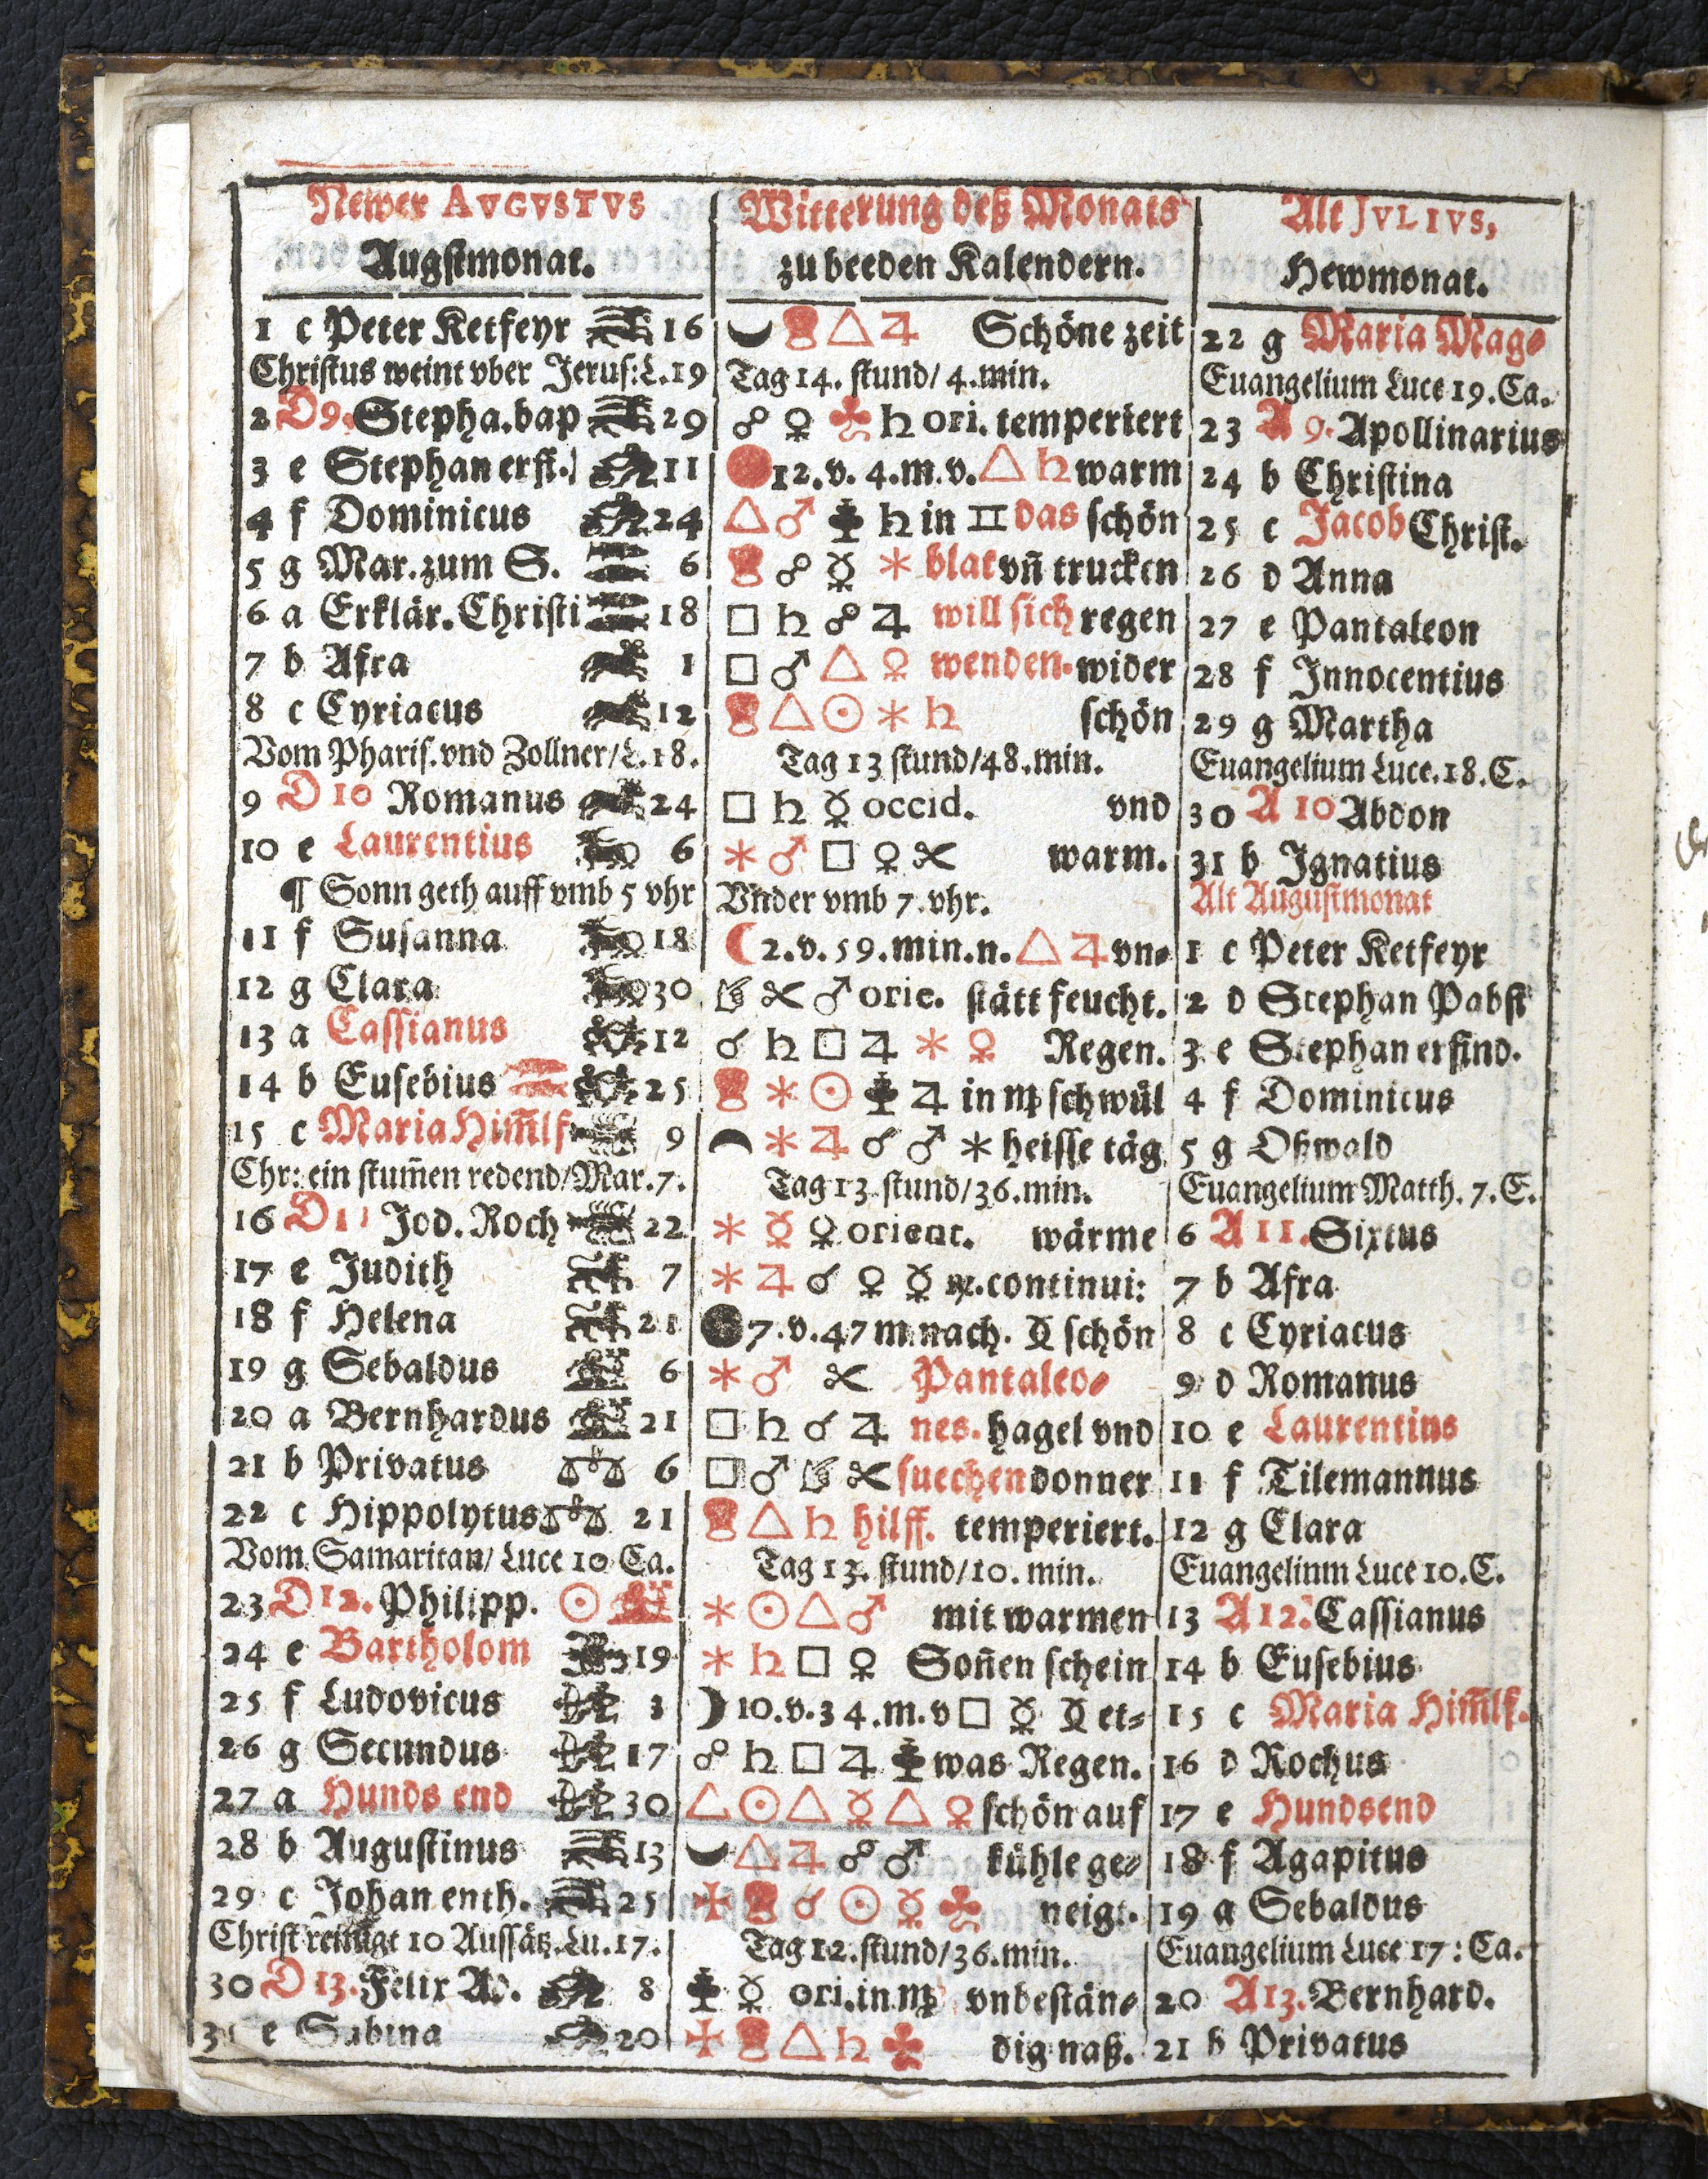 Newer AVGVSTVS
Augstmonat.
1 c Peter Ketfeyr 16
Christus weint vber Jerus: L.19
2 D 9. Stepha.bap 29
3 e Stephan erst. 11
4 f Dominicus 24
5 g Mar. zum S. 6
6 a Erklär. Christi 18
7 b Afra 1
8 c Cyriacus 12
Vom Pharis. vnd Zollner/L.18.
9 D 10 Romanus 24
10 e Laurentius 6
¶ Sonn geth auff vmb 5 vhr
11 f Susanna 18
12 g Clara 30
13 a Cassianus 12
14 b Eusebius 25
15 c Maria Him̃lf 9
Chr: ein stum̃en redend/Mar.7.
16 D 11 Jod. Roch 22
17 e Judith 7
18 f Helena 21
19 g Sebaldus 6
20 a Bernhardus 21
21 b Privatus 6
22 c Hippolytus 21
Vom Samaritan/ Luce 10 Ca.
23 D 12. Philipp. ☉
24 e Bartholom 19
25 f Ludovicus 3
26 g Secundus 17
27 a Hunds end 30
28 b Augustinus 13
29 c Johan enth. 25
Christ reinigt 10 Aussätz. Lu.17.
30 D 13. Felix Ad. 8
31 e Sabina 20
Witterung deß Monats
zu beeden Kalendern.
△ ♃ Schöne zeit
Tag 14. stund/ 4. min.
☍ ♀ ♣ ♄ ori. temperiert
12. v. 4. m. v. △ ♄ warm
△ ♂ ♄ in ♊ das schön
☍ ☿ * blat vñ trucken
□ ♄ ☍ ♃ will sich regen
□ ♂ △ ♀ wenden. wider
△ ☉ * ♄ schön
Tag 13 stund/48. min.
□ ♄ ☿ occid. vnd
* ♂ □ ♀ ✂ warm.
Vnder vmb 7. vhr.
☾ 2. v. 59. min. n. △ ♃ vn-
✂ ♂ orie. stätt feucht.
☌ ♄ □ ♃ * ♀ Regen.
* ☉ ♃ in ♍ schwül
* ♃ ☌ ♂ * heisse täg
Tag 13. stund/36. min.
* ☿ ♀ orient. wärme
* ♃ ☌ ♀ ☿ ♍. continui:
7. v. 47 m nach. schön
* ♂ ✂ Pantaleo-
□ ♄ ☌ ♃ nes. hagel vnd
□ ♂ ✂ suechen donner
△ ♄ hilff. temperiert.
Tag 13. stund/10. min.
* ☉ △ ♂ mit warmen
* ♄ □ ♀ Soñen schein
☽ 10. v. 34. m. v □ ☿ et-
☍ ♄ □ ♃ was Regen.
△ ☉ △ ☿ △ ♀ schön auf
△ ♃ ☍ ♂ kühle ge-
✠ ☌ ☉ ☿ ♣ neigt.
Tag 12. stund/36. min.
☿ ori. in ♍ vnbestän-
✠ △ ♄ ♣ dig naß.
Alt JVLIVS,
Hewmonat.
22 g Maria Mag-
Euangelium Luce 19. Ca.
23 A 9. Apollinarius
24 b Christina
25 c Jacob Christ.
26 d Anna
27 e Pantaleon
28 f Innocentius
29 g Martha
Euangelium Luce. 18. C.
30 A 10 Abdon
31 b Ignatius
Alt Augustmonat
1 c Peter Ketfeyr
2 d Stephan Pabst
3 e Stephan erfind.
4 f Dominicus
5 g Oßwald
Euangelium Matth. 7. C.
6 A 11. Sixtus
7 b Afra
8 c Cyriacus
9 d Romanus
10 e Laurentius
11 f Tilemannus
12 g Clara
Euangelinm Luce 10. C.
13 A 12. Cassianus
14 b Eusebius
15 c Maria Him̃lf.
16 d Rochus
17 e Hundsend
18 f Agapitus
19 g Sebaldus
Euangelium Luce 17: Ca.
20 A 13. Bernhard.
21 b Privatus